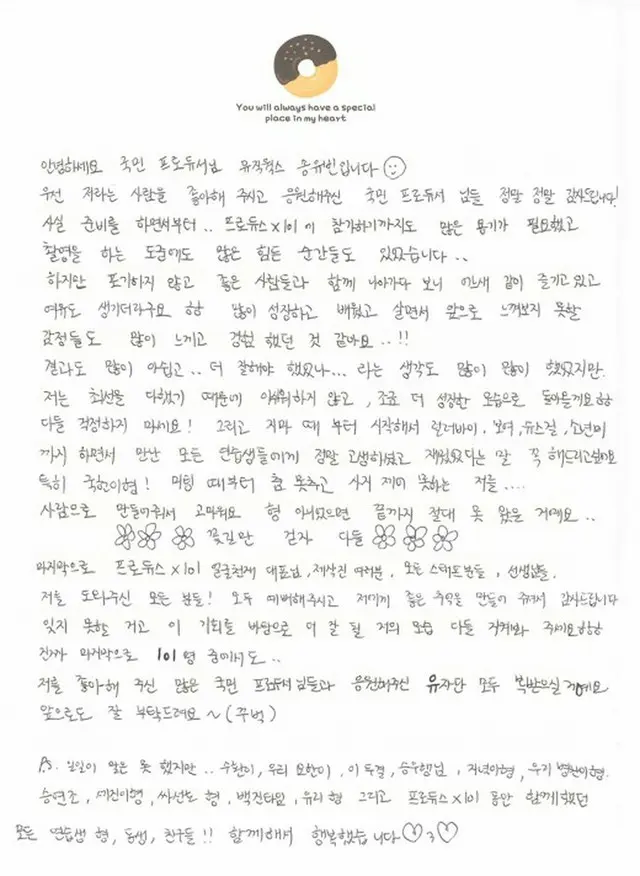 You will always have a special
place in my heart
안녕하세요 국민 프로듀서님 뮤직웍스 송유빈입니다
우선 저라는 사람을 좋아해 주시고 응원해주신 국민 프로듀서 님들 정말 정말 감사드립니다!
사실 준비를 하면서부터.. 프로듀스 X 101 이 참가하기까지도 많은 용기가 필요했고
촬영을 하는 도중에도 많은 힘든 순간들도 있었습니다..
하지만 포기하지 않고 좋은 사람들과 함께 나아가다 보니 어느새 같이 즐기고 있고
여유도 생기더라구요 항항 많이 성장하고 배웠고 살면서 앞으로 느껴보지 못할
감정들도 많이 느끼고 경험 했던 것 같아요..!!
결과도 많이 아쉽고.. 더 잘해야 했었나... 라는 생각도 많이 많이 했었지만.
저는 최선을 다했기 때문에 아쉬워하지 않고, 조금 더 성장한 모습으로 돌아올게요항항
다들 걱정하지 마세요! 그리고 지마 때 부터 시작해서 보여, 뉴스걸, 소년미
까지 하면서 만난 모든 연습생들에게 정말 고생하셨고 재밌었다는 말 꼭 해드리고싶어요
특히 국헌이형! 미팅 때부터 춤 못추고 사실 재미 못하는 저를....
사람으로 만들어줘서 고마워요 형 아니었으면 끝까지 절대 못 왔을 거예요..
꽃길만 걷자 다들
마지막으로 프로듀스 X 101 얼굴천재 대표님, 제작진 여러분, 모든 스태프분들, 선생님들.
저를 도와주신 모든 분들! 모두 예뻐해주시고 저에게 좋은 추억을 만들어 주셔서 감사드립니다
잊지 못할 거고 이 기회를 바탕으로 더 잘 될 저의 모습 다들 지켜봐 주세요항항
진짜 마지막으로 101명 중에서도..
저를 좋아해 주신 많은 국민 프로듀서님들과 응원해주신 유자단 모두 복받으실거예요
앞으로도 잘 부탁드려요~(꾸벅)
P.S. 일일이 말은 못 했지만.. 수환이, 우리 요한이, 이 투결, 승우형님, 진녁이형, 우리 병찬이형.
승연조, 세진이형, 싸선논 형, 백진타임, 유리 형 그리고 프로듀스 X 101 동안 함께했던
모든 연습생 형, 동생, 친구들!! 함께해서 행복했습니다♡3♡